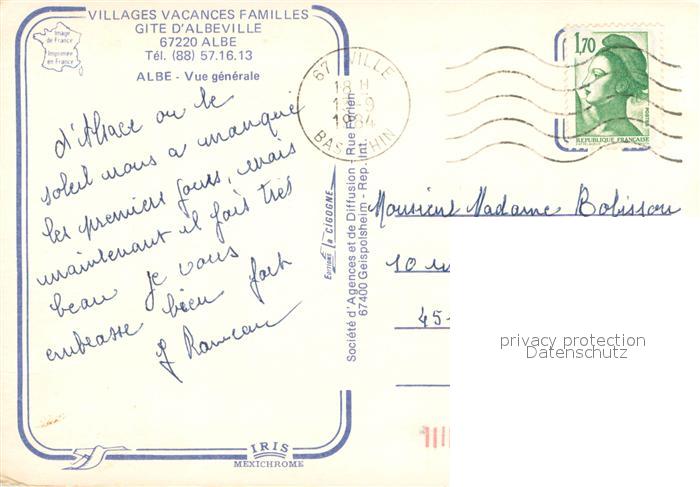 VILLAGES VACANCES FAMILLES
GITE D'ALBEVILLE
67220 ALBE
Tél. (88) 57.16.13
ALBE - Vue générale
Image
de France
Imprimée
en France
d'Alsace ou le
soleil nous a manqué
les premiers jours, mais
maintenant il fait très
beau je vous
embrasse bien fort
67 VILLE
18 H
1984
BAS-RHIN
1,70
POSTES
REPUBLIQUE FRANÇAISE
Editions la CIGOGNE
Société d'Agences et de Diffusion - Rue Forlen
67400 Geispolsheim - Rep. Int.
Monsieur Madame
10
45
privacy protection
Datenschutz
IRIS
MEXICHROME